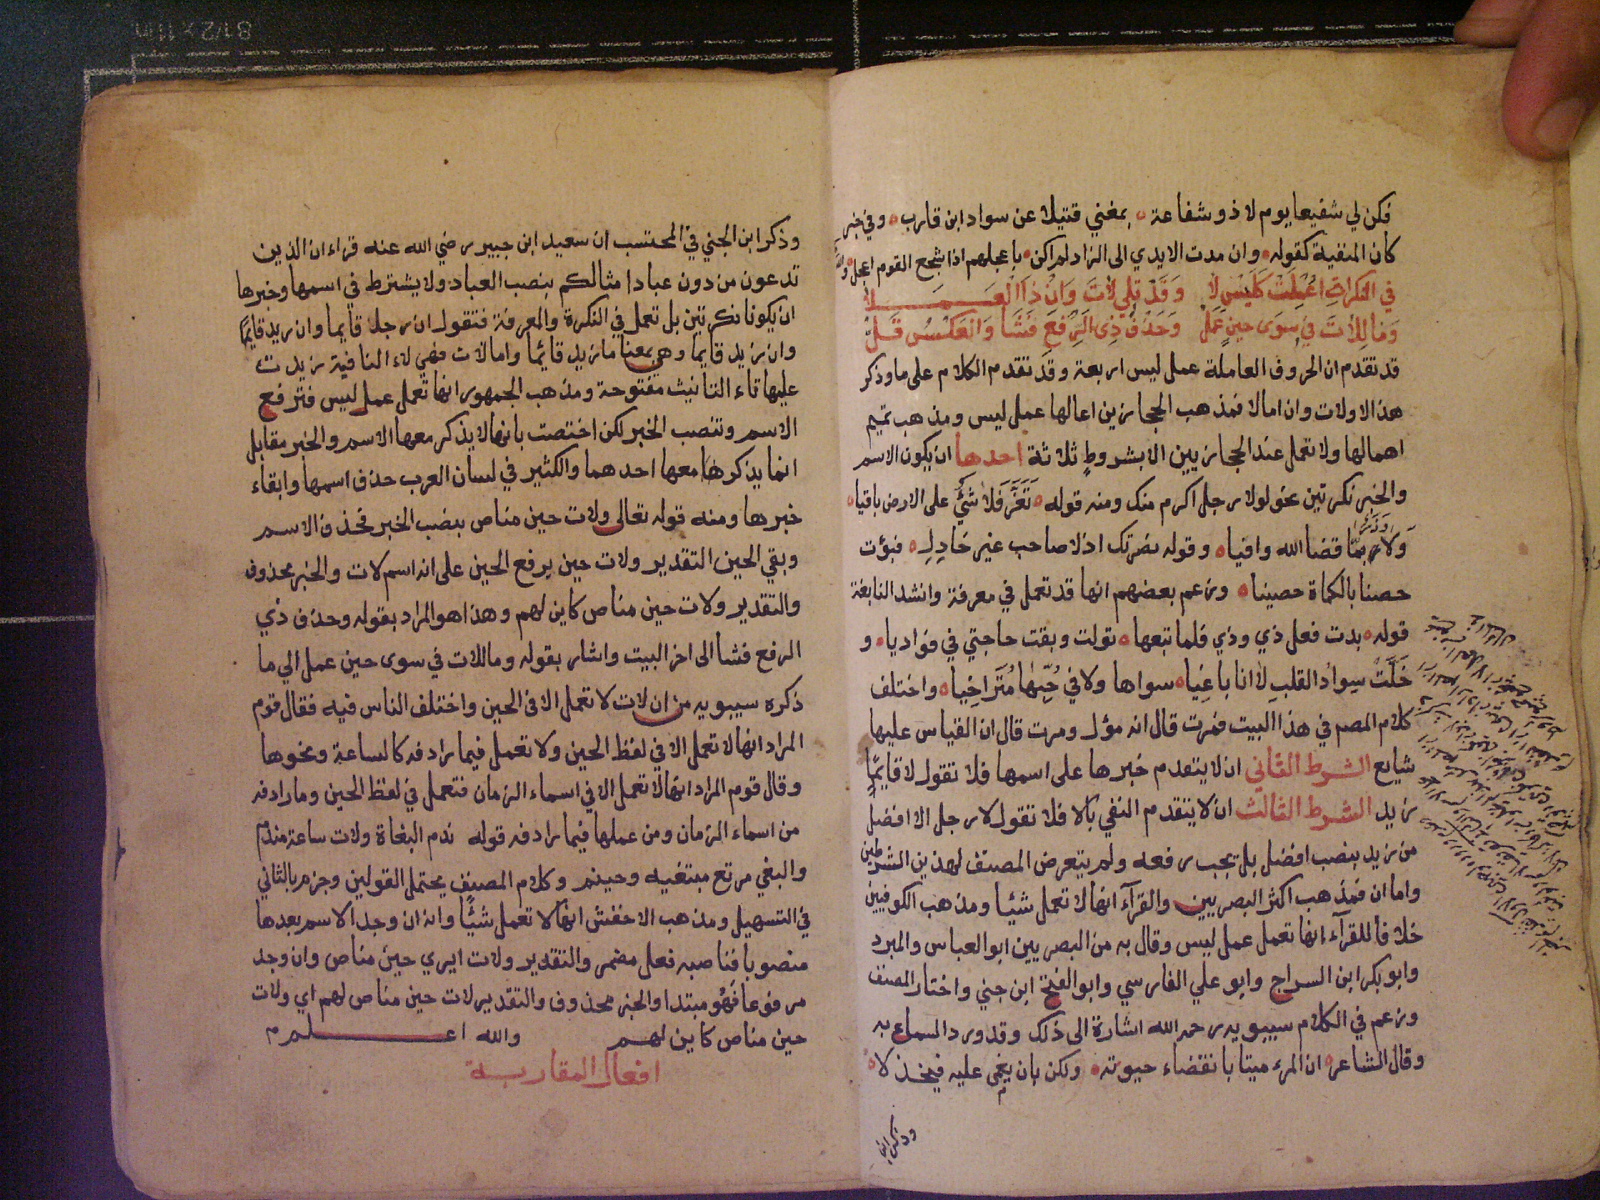 فكن لي شفيعا يوم لا ذو شفاعة ه بمغني قتيلا عن سواد ابن قارب ه وفي خبر
كان المنفية كقوله ه وان مدت الايدي الى الزاد لم اكن ه باعجلهم اذا شجع القوم اعجل ه
في النكرات اعملت كليس لا وقد تلي لات وان ذا العمـــلا
وما للات في سوى حين عمل وحذف ذي الرفع فشا والعكس قل
قد تقدم ان الحروف العاملة عمل ليس اربعة وقد تقدم الكلام على ما وذكر
هنا لا ولات وان اما لا فمذهب الحجازيين اعمالها عمل ليس ومذهب تميم
اهمالها ولا تعمل عند الحجازيين الا بشروط ثلاثة احدها ان يكون الاسم
والخبر نكرتين نحو لا رجل اكرم منك ومنه قوله ه تعز فلا شئ على الارض باقيا ه
ولا وزر مما قضا الله واقيا ه وقوله نصرتك اذ لا صاحب غير خاذل ه فبؤت
حصنا بالكماة حصينا ه وزعم بعضهم انها قد تعمل في معرفة وانشد النابغة
قوله ه بدت فعل ذي ود في فلما تبعها ه تولت وبقت حاجتي في فواديا ه و
خلت سواد القلب لا انا باغيا ه سواها ولا في حبها متراخيا ه واختلف
كلام المصم في هذا البيت فمرت قال انه مؤل ومرت قال ان القياس عليها
شايع الشرط الثاني ان لا يتقدم خبرها على اسمها فلا تقول لا قايما
زيد الشرط الثالث ان لا يتقدم النفي بالا فلا تقول لا رجل الا افضل
من زيد بنصب افضل بل يجب رفعه ولم يتعرض المصنف لهذين الشرطين
واما ان فمذهب اكثر البصريين والفرآ انها لا تعمل شئيا ومذهب الكوفيين
خلافا للفرآء انها تعمل عمل ليس وقال به من البصريين ابو العباس والمبرد
وابو بكر ابن السراج وابو علي الفارسي وابو الفتح ابن جني واختار المصنف
وزعم في الكلام سيبويه رحمه الله اشارة الى ذلك وقد ورد السماع به
وقال الشاعر ه ان المرء ميتا بانقضاء حيوته ه ولكن بان يبغى عليه فيخذلا ه
وذكر ابن
وذكر ابن الجني في المحتسب ان سعيد ابن جبير رضي الله عنه قراء ان الذين
تدعون من دون عبادا مثالكم بنصب العباد ولا يشترط في اسمها وخبرها
ان يكونا نكرتين بل تعمل في النكرة والمعرفة فتقول ان رجل قايما وان زيد قايما
وان زيد قايما وهي بمعنا ما زيد قائما واما لات فهي لاء النافية زيدت
عليها تاء التانيث مفتوحة ومذهب الجمهور انها تعمل عمل ليس فترفع
الاسم وتنصب الخبر لكن اختصت بانها لا يذكر معها الاسم والخبر مقابل
انما يذكر معها احدهما والكثير في لسان العرب حذف اسمها وابقاء
خبرها ومنه قوله تعالى ولات حين مناص بنصب الخبر فحذف الاسم
وبقي الحين التقدير ولات حين برفع الحين على انه اسم لات والخبر محذوف
والتقدير ولات حين مناص كاين لهم وهذا هو المراد بقوله وحذف ذي
الرفع فشا الى اخر البيت واشار بقوله وما للات في سوى حين عمل الي ما
ذكره سيبويه من ان لات لا تعمل الا في الحين واختلف الناس فيه فقال قوم
المراد انها لا تعمل الا في لفظ الحين ولا تعمل فيما رادفه كالساعة ونحوها
وقال قوم المراد انها لا تعمل الا في اسماء الزمان فتعمل في لفظ الحين وما رادفه
من اسماء الزمان ومن عملها فيما رادفه قوله ندم البغاة ولات ساعة مندم
والبغي مرتع مبتغيه وخيم وكلام المصنف يحتمل القولين وجزم بالثاني
في التسهيل ومذهب الاخفش انها لا تعمل شئيا وانه ان وجد الاسم بعدها
منصوبا فناصبه فعل مضمر والتقدير ولات ايري حين مناص وان وجد
مرفوعا فهو مبتدا والخبر محذوف والتقدير لات حين مناص لهم اي ولات
حين مناص كاين لهم والله اعـــلم م
افعال المقاربة